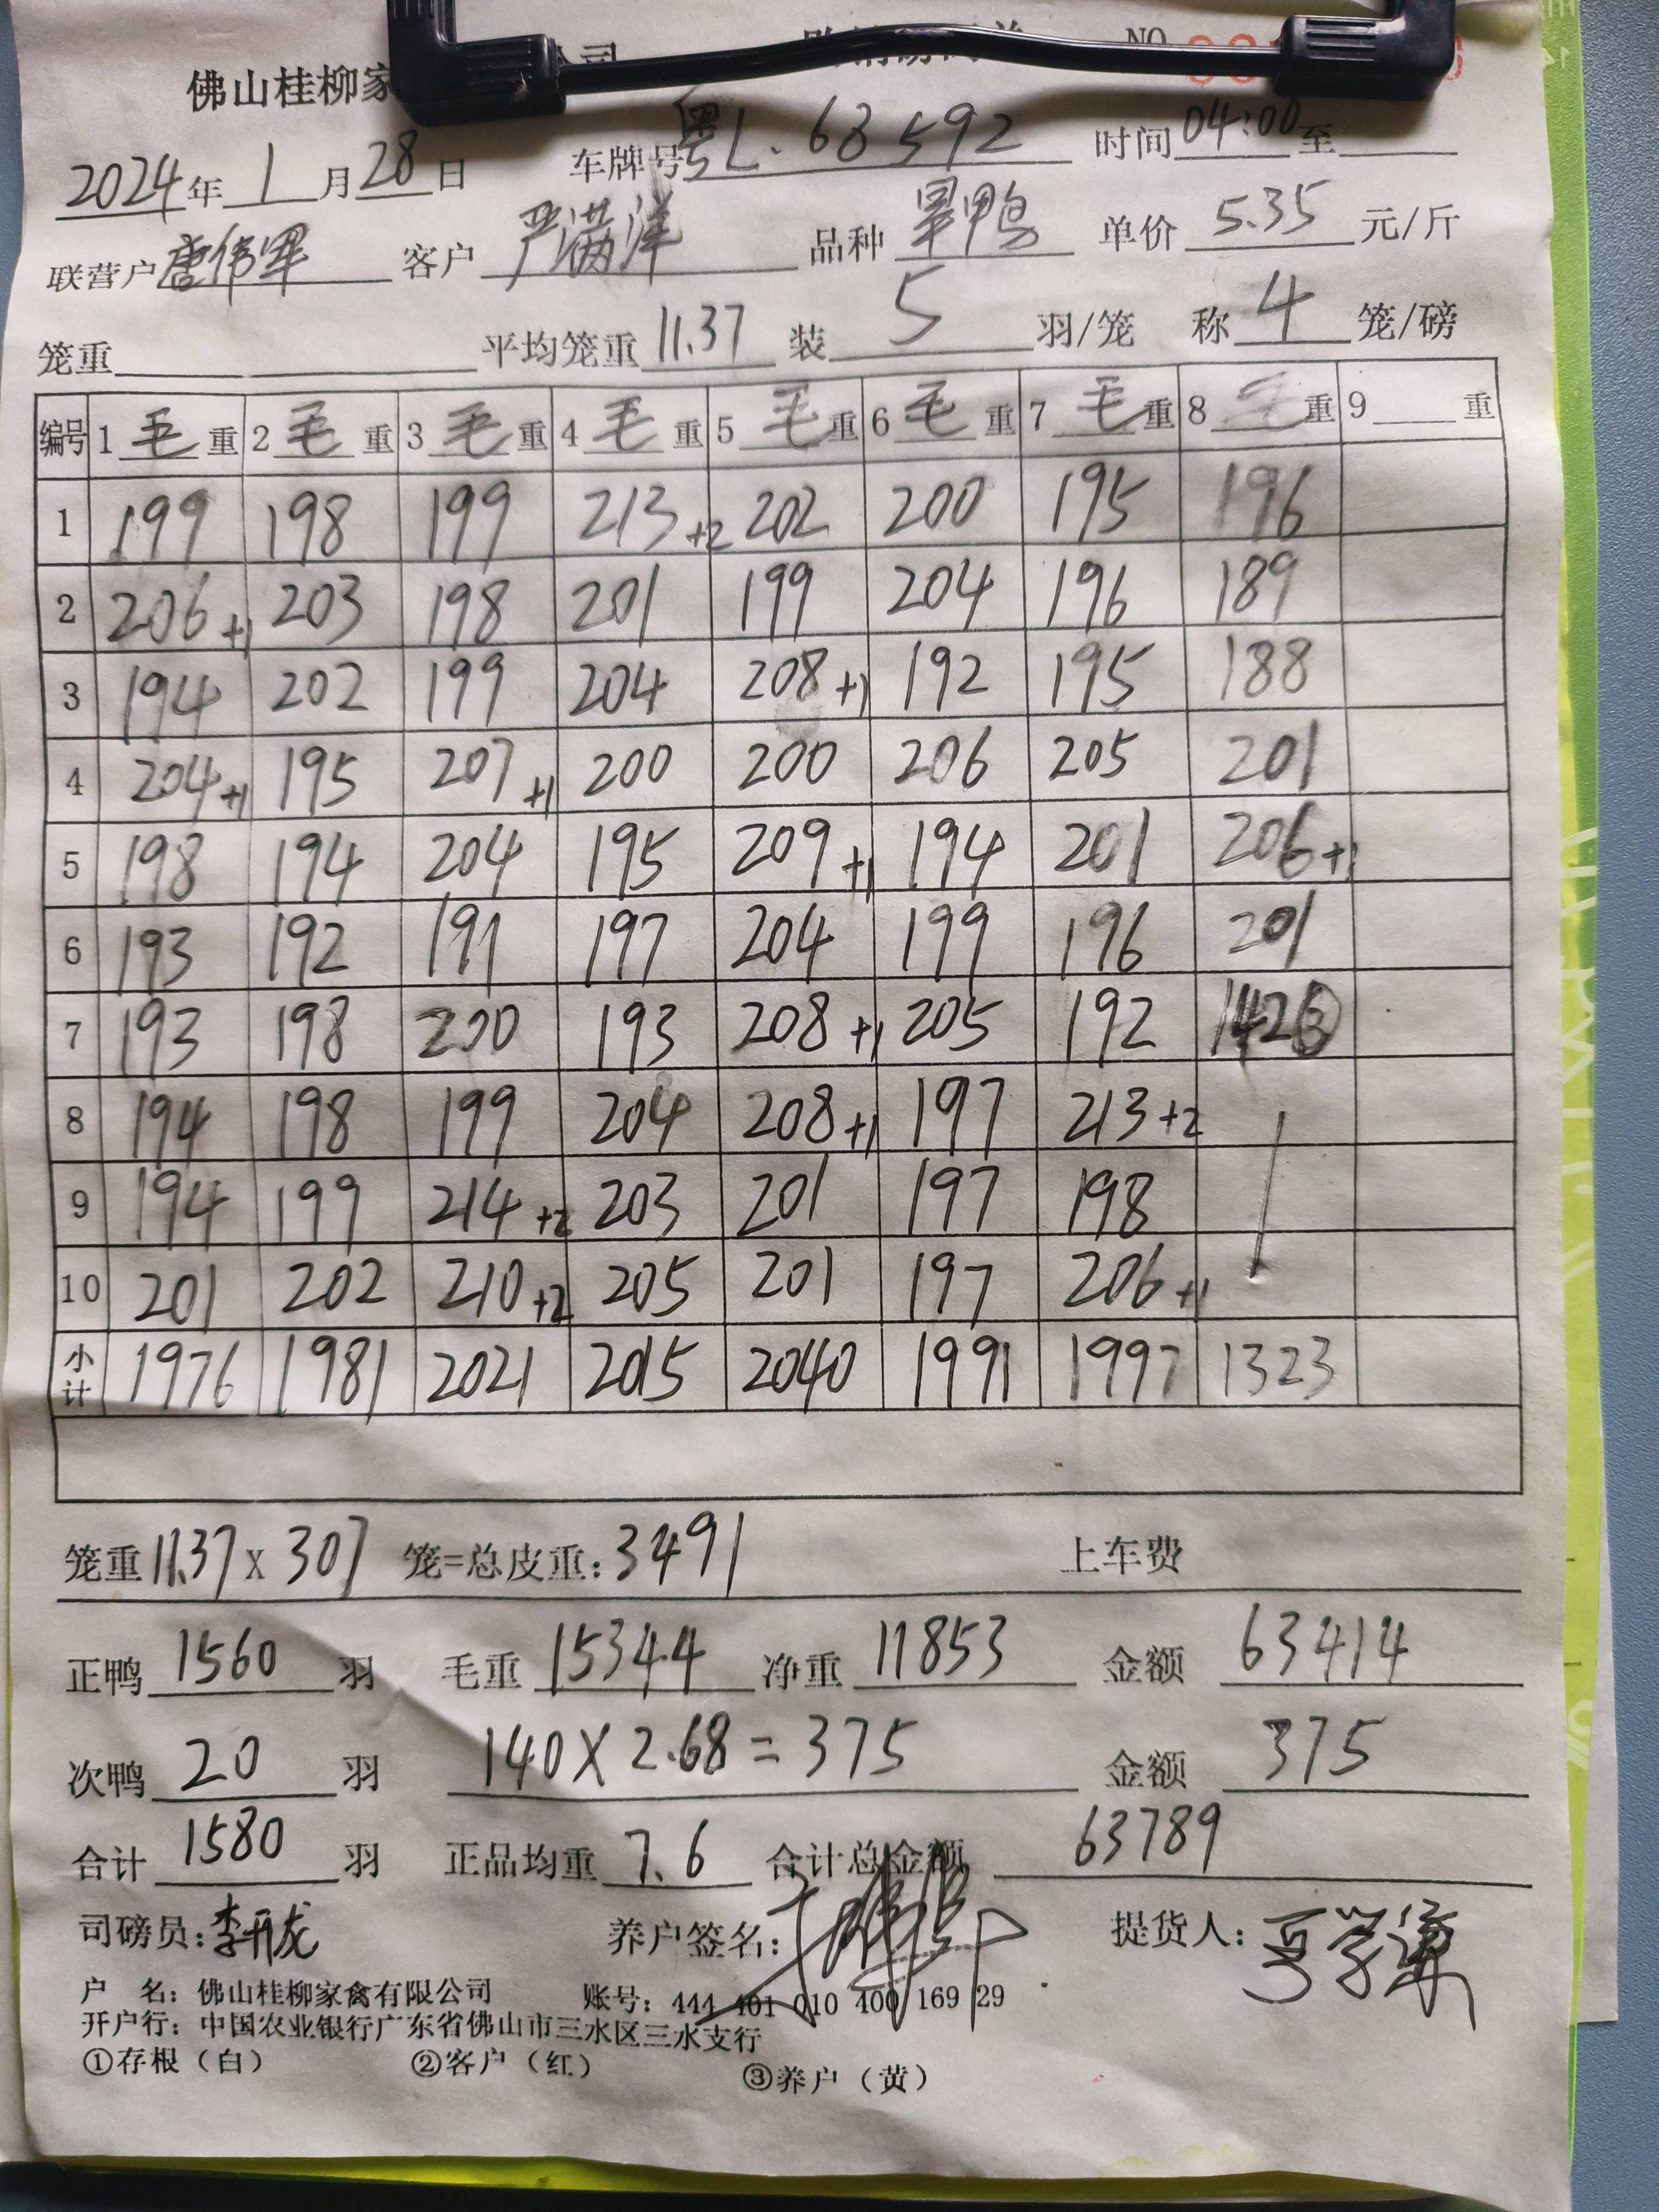 佛山桂柳家 公司 NO
2024年1月28日 车牌号粤L.63592 时间04:00至
联营户唐伟军 客户严满洋 品种旱鸭 单价5.35元/斤
笼重 平均笼重11.37 装5羽/笼 称4笼/磅
编号 1毛重 2毛重 3毛重 4毛重 5毛重 6毛重 7毛重 8毛重 9重
1 199 198 199 213+2 202 200 195 196
2 206+1 203 198 201 199 204 196 189
3 194 202 199 204 208+1 192 195 188
4 204+1 195 207+1 200 200 206 205 201
5 198 194 204 195 209+1 194 201 206+1
6 193 192 191 197 204 199 196 201
7 193 198 200 193 208+1 205 192 142③
8 194 198 199 204 208+1 197 213+2
9 194 199 214+2 203 201 197 198
10 201 202 210+2 205 201 197 206+1
小计 1976 1981 2021 2015 2040 1991 1997 1323
笼重11.37x307笼=总皮重:3491 上车费
正鸭1560羽 毛重15344 净重11853 金额63414
次鸭20羽 140×2.68=375 金额375
合计1580羽 正品均重7.6 合计总金额63789
司磅员:李开龙 养户签名: 提货人:
户 名:佛山桂柳家禽有限公司 账号:444 401 010 400 169 29
开户行:中国农业银行广东省佛山市三水区三水支行
①存根(白) ②客户(红) ③养户(黄)